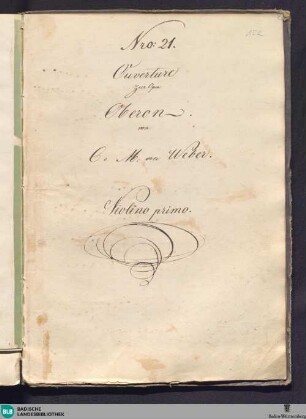 Nro: 21.
Ouverture
zur Oper
Oberon.
von
C. M. von Weber.
Violino primo.
BLB
BADISCHE
LANDESBIBLIOTHEK
Baden-Württemberg